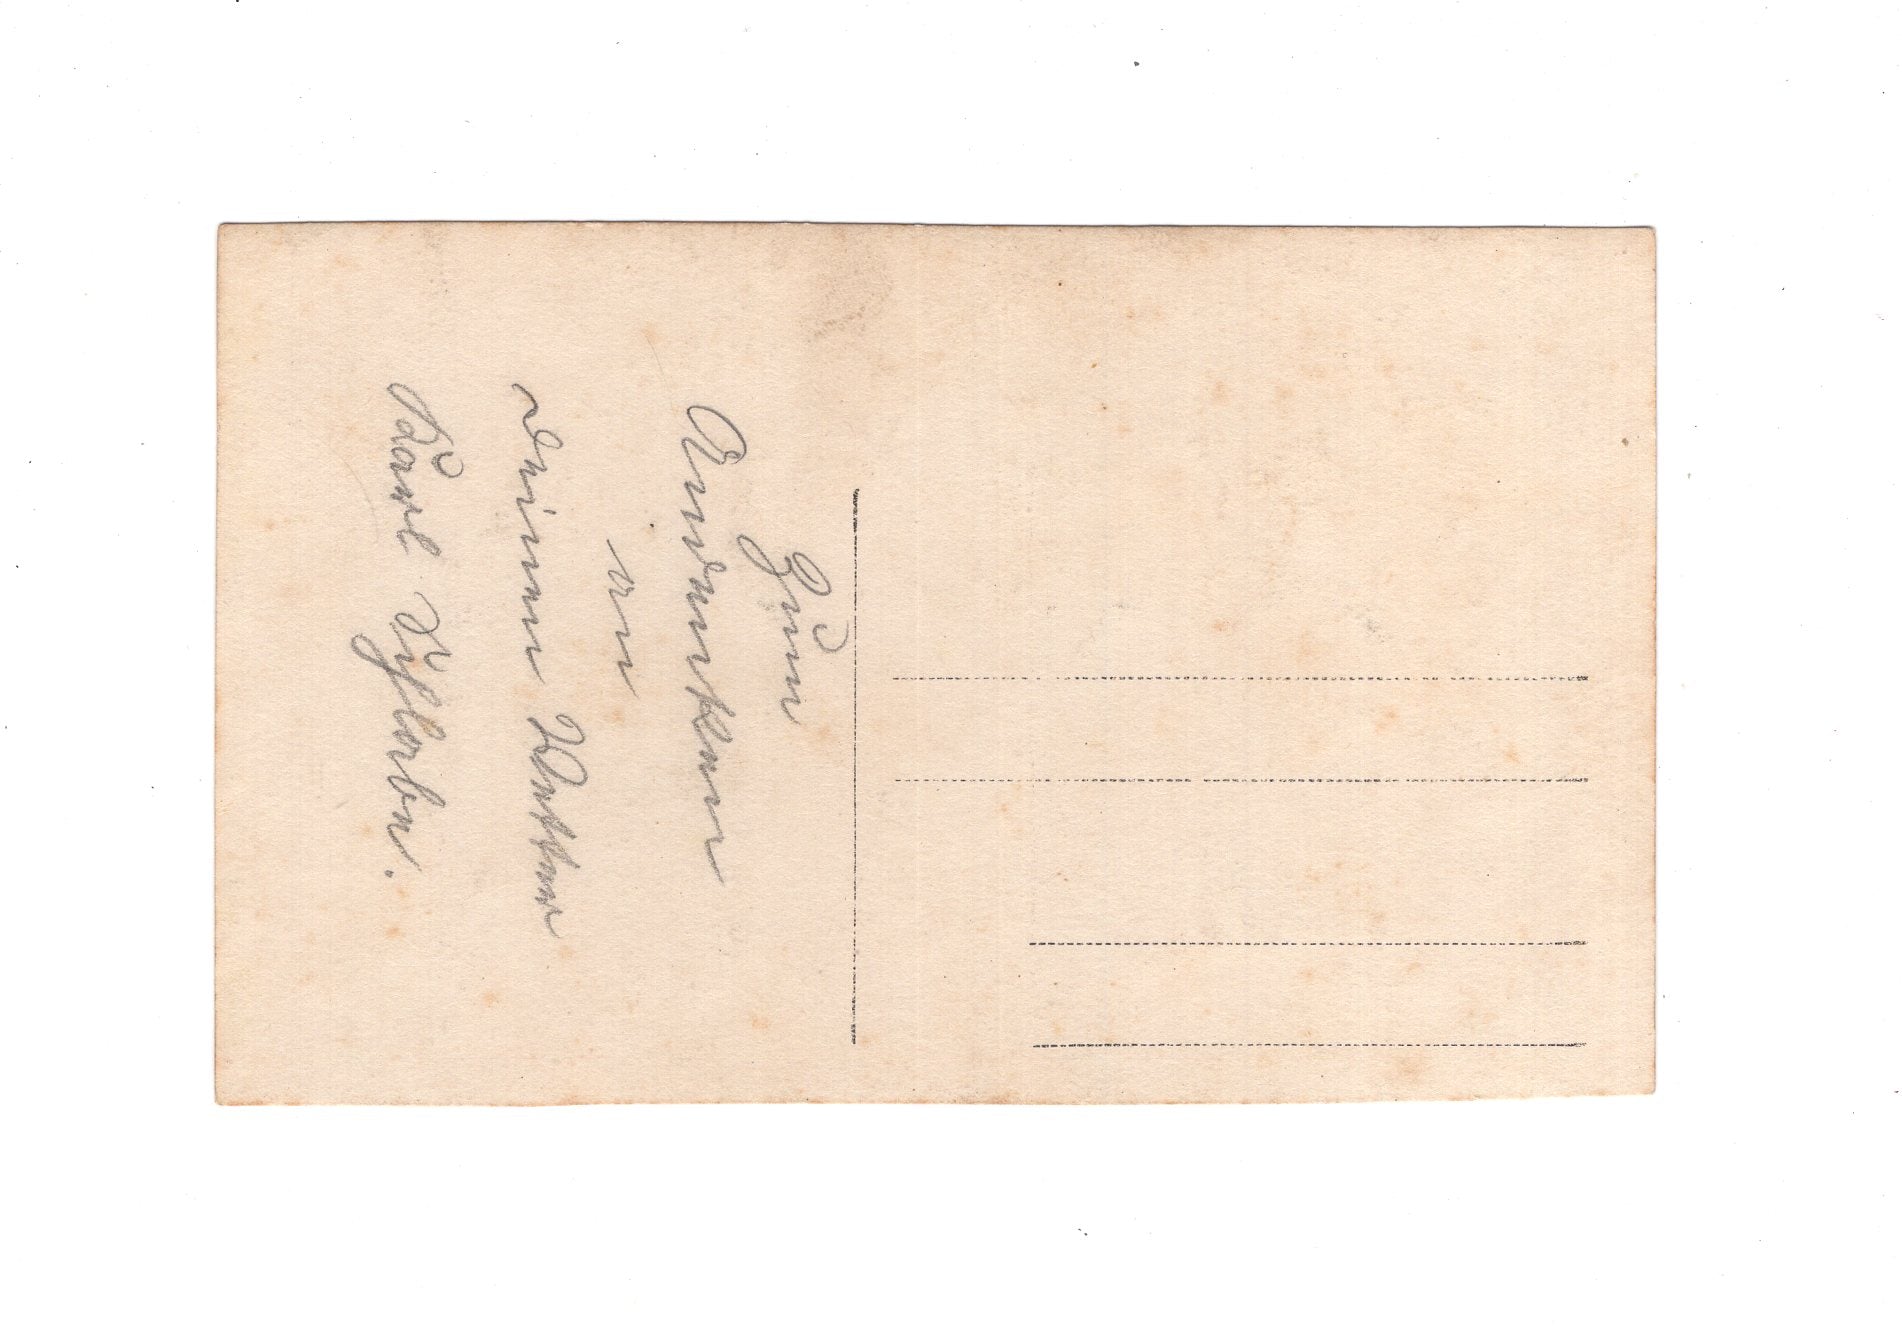 Zum
Andenken
an
Deinen Vetter
Karl